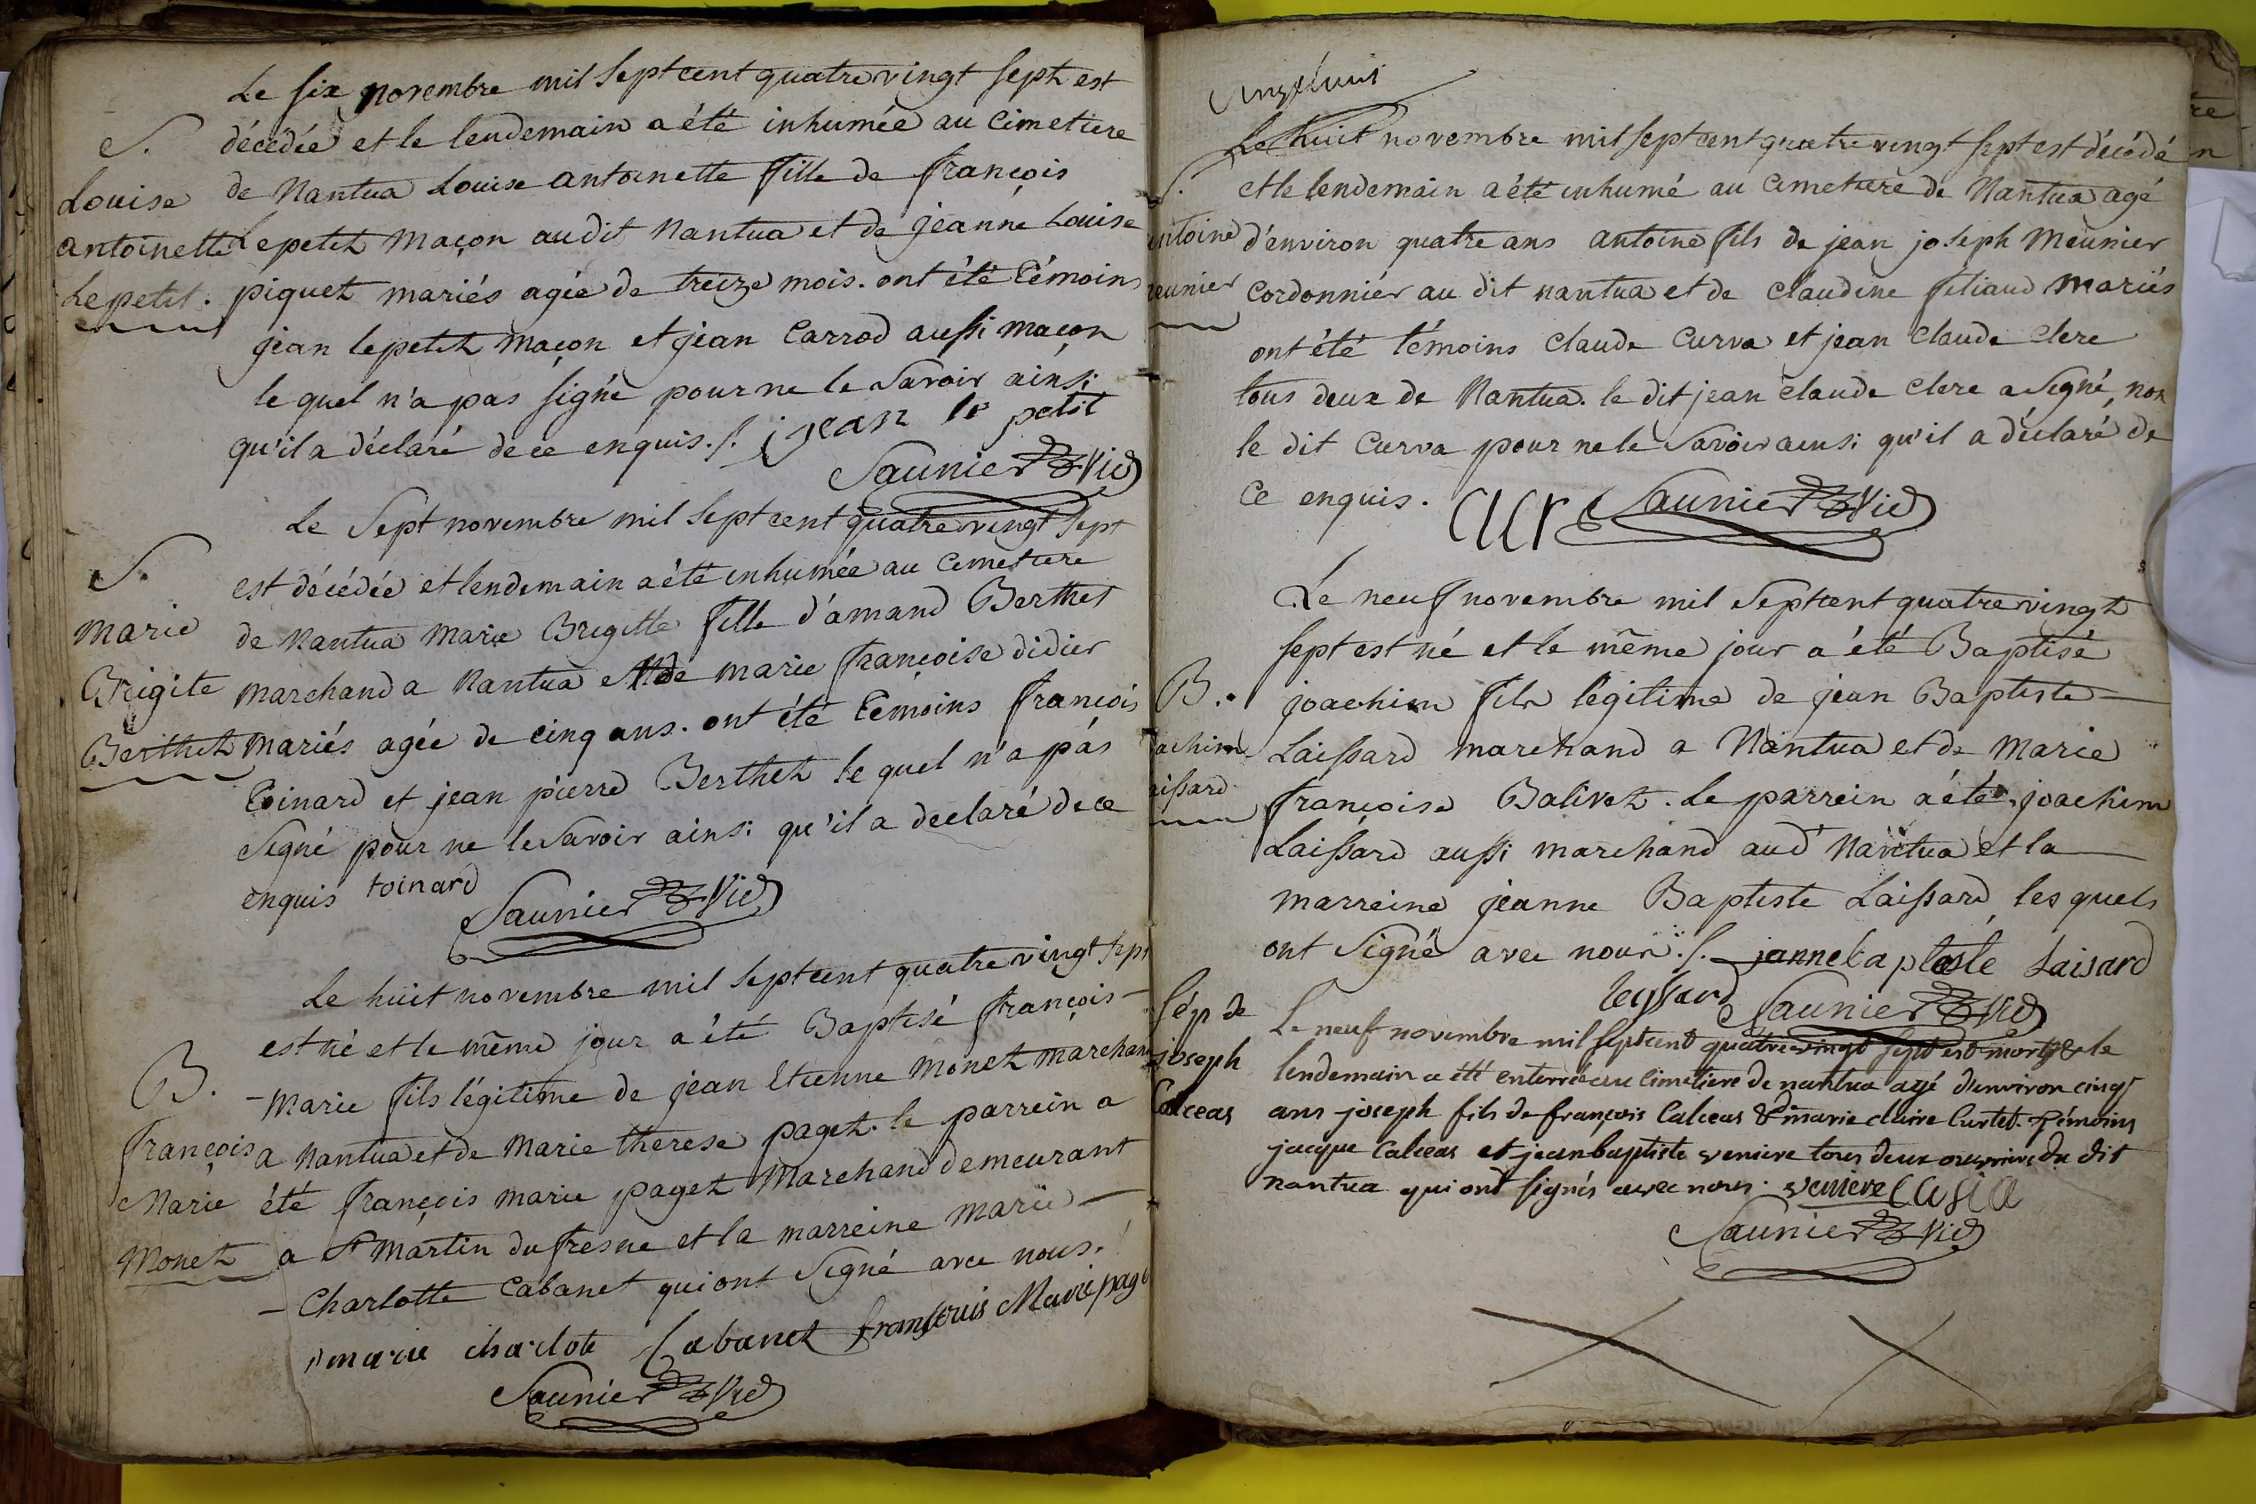 Le six novembre mil sept cent quatre vingt sept est
S.
décédée et le lendemain a été inhumée au cimetiere
Louise
de Nantua Louise antoinette fille de françois
antoinette
Lepetit maçon audit Nantua et de jeanne Louise
Lepetit.
piquet mariés agée de treize mois. ont été témoins
jean lepetit maçon et jean Carrod aussi maçon
le quel n'a pas signé pour ne le savoir ainsi
qu'il a déclaré de ce enquis. /. jean le petit
Saunier Vic
Le Sept novembre mil sept cent quatre vingt sept
S.
est décédée et lendemain a été inhumée au cimetiere
marie
de Nantua marie Brigitte fille d'amand Berthet
Brigite
marchand a Nantua et de marie françoise didier
Berthet
mariés agée de cinq ans. ont été témoins françois
toinard et jean pierre Berthet le quel n'a pas
signé pour ne le savoir ainsi qu'il a declaré de ce
enquis toinard
Saunier Vic
Le huit novembre mil sept cent quatre vingt sept
est né et le même jour a été Baptisé françois -
B.
- marie fils légitime de jean Etienne Monet marchand
françois
a Nantua et de marie therese paget. le parrein a
Marie
été françois marie paget Marchand demeurant
Monet
a St martin du fresne et la marreine marie -
- Charlotte Cabanet qui ont signé avec nous.
marie charlote Cabanet françouis Marie page
Saunier Vic
Le huit novembre mil sept cent quatre vingt sept est décédé
S.
et le lendemain a été inhumé au cimetiere de Nantua agé
antoine
d'environ quatre ans antoine fils de jean joseph Meunier
meunier
cordonnier au dit nantua et de claudine filiaud mariés
ont été témoins claude Curva et jean claude clere
tous deux de Nantua. le dit jean claude clere a signé, non
le dit Curva pour ne le savoir ainsi qu'il a déclaré de
ce enquis. Saunier Vic
Le neuf novembre mil sept cent quatre vingt
sept est né et le même jour a été Baptisé
B.
joachim fils légitime de jean Baptiste -
achim
Laissard marchand a Nantua et de marie
aissard
françoise Balivet. Le parrein a été joachim
Laissard aussi marchand aud Nantua et la -
marreine jeanne Baptiste Laissard, les quels
ont signé avec nous. /. janne baptiste Laisard
leyssard Saunier Vic
Sép de
Le neuf novembre mil sept cent quatre vingt sept est mort & le
joseph
lendemain a été enterré au cimetiere de nantua agé d'environ cinq
Calceas
ans joseph fils de françois Calceas & marie claire Curtet. témoins
jacque Calceas et jean baptiste veniere tous deux ouvriers du dit
nantua qui ont signés avec nous. veniere
Saunier Vic